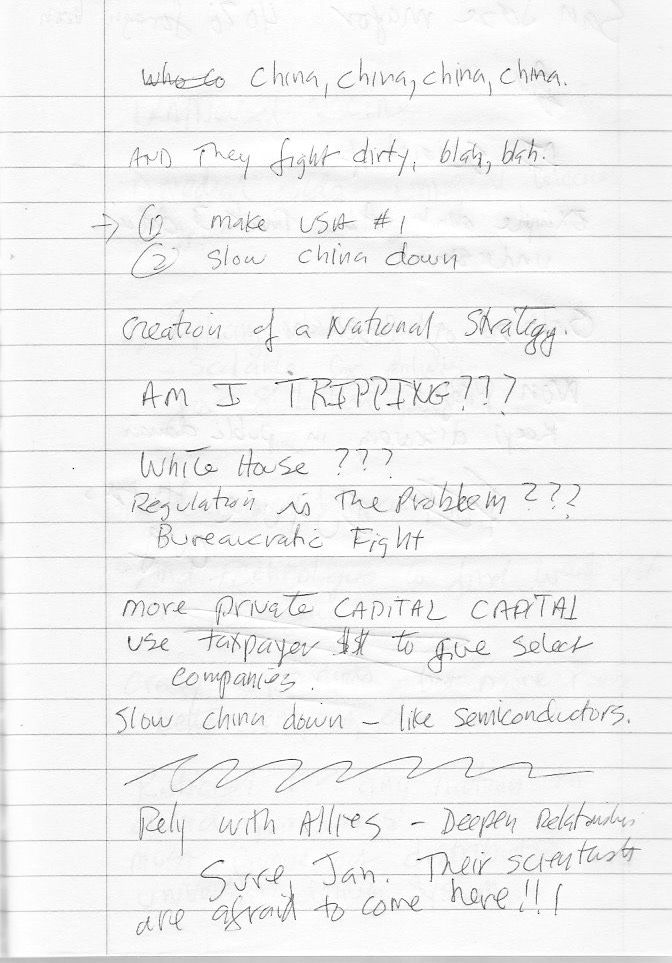 Who Co China, China, China, China.
AND They fight dirty, blah, blah.
→ ① make USA #1
② Slow China down
Creation of a National Strategy.
AM I TRIPPING???
White House ???
Regulation is the Problem ???
Bureaucratic Fight
more private CAPITAL CAPITAL
use taxpayer $$ to give select
companies.
Slow China down – like Semiconductors.
Rely with Allies – Deepen Relationships
Sure, Jan. Their scientists
are afraid to come here!!!